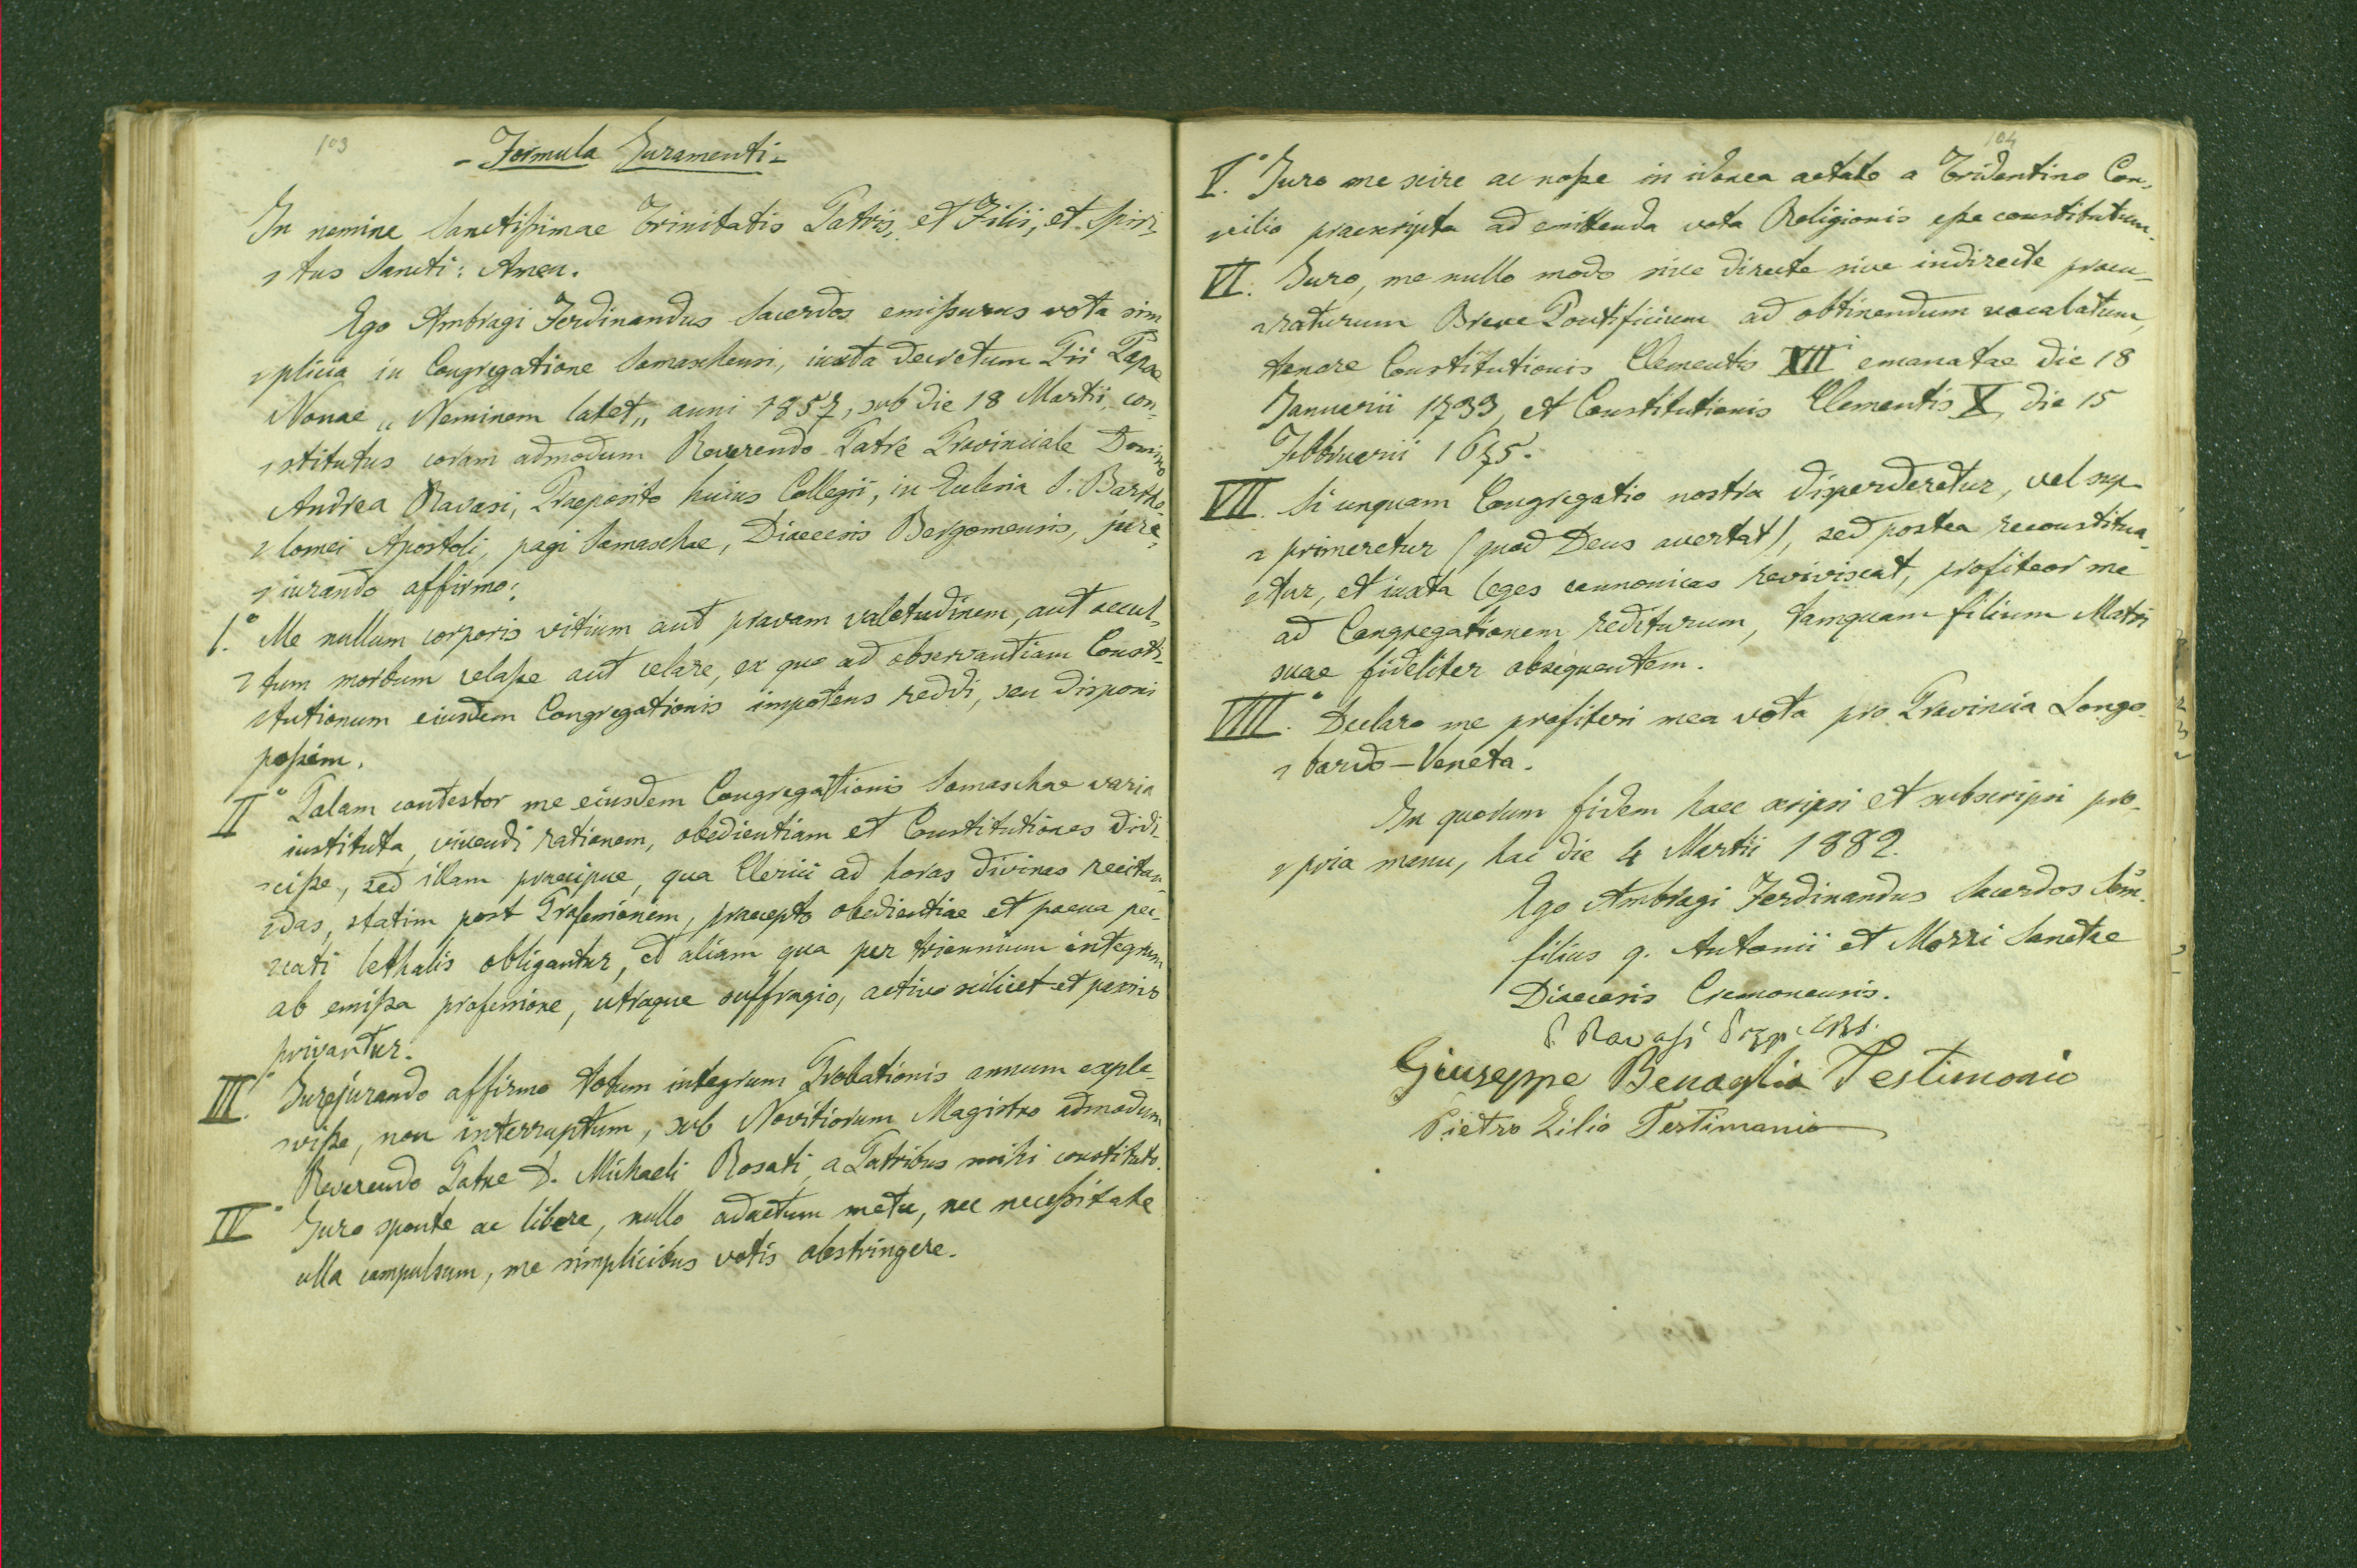 103
- Formula Juramenti -
In nomine Sanctissimae Trinitatis Patris, et Filii, et Spiri-
tus Sancti: Amen.
Ego Ambragi Ferdinandus Sacerdos emissurus vota sim
plicia in Congregatione Somaschensi, iuxta decretum Pii Papae
Nonae „ Neminem latet„ anni 1857, sub die 18 Martii, con-
stitutus coram admodum Reverendo Patre Provinciale Domino
Andrea Ravasi, Praeposito huius Collegii, in Eclesia S. Bartho-
lomei Apostoli, pagi Somaschae, Dioecesis Bergomensis, jure-
iurando affirmo:
I.° Me nullum corporis vitium aut pravam valetudinem, aut occul-
tum morbum celasse aut celare, ex quo ad observantiam Consti-
tutionum eiusdem Congregationis impotens reddi, seu disponi
possim.
II° Palam contestor me eiusdem Congregationis Somaschae varia
instituta, vivendi rationem, obedientiam et Constitutiones didi-
cisse, sed illam praecipue, qua Clerici ad horas divinas recitan-
das, statim post Professionem, praecepto obedientiae et poena pec-
cati lethalis obligantur, et aliam qua per triennium integrum
ab emissa professione, utroque suffragio, activo scilicet et passivo
privantur.
III.° Jurejurando affirmo totum integrum Probationis annum exple-
visse, non interruptum, sub Novitiorum Magistro admodum
Reverendo Patre D. Michaeli Rosati, a Patribus mihi constituto.
IV° Juro sponte ac libere, nullo adactum metu, nec necessitate
ulla compulsum, me simplicibus votis abstringere.
104
V.° Juro me scire ac nosse in idonea aetate a Tridentino Con-
cilio praescripta ad emittenda vota Religionis esse constitutum.
VI. Juro, me nullo modo sive directe sive indirecte procu-
raturum Breve Pontificium ad obtinendum vocalatum,
tenore Constitutionis Clementis XII emanatae die 18
Januarii 1733, et Constitutionis Clementis X, die 15
Febbruarii 1675.
VII. Si unquam Congregatio nostra disperderetur, vel sup-
primeretur (quod Deus avertat), sed postea reconstitua-
tur, et iuxta leges cannonicas reviviscat, profiteor me
ad Congregationem rediturum, tamquam filium Matri
suae fideliter obsequentem.
VIII.° Declaro me profiteri mea vota pro Provincia Longo-
bardo-Veneta.
In quorum fidem haec scripsi et subscripsi pro-
pria manu, hac die 4 Martii 1882.
Ego Ambragi Ferdinandus Sacerdos
filius q. Antonii et Mozzi Sanctae
Dioecesis Cremonensis.
P. Ravasi
Giuseppe Benaglia Testimonio
Pietro Zilio Testimonio